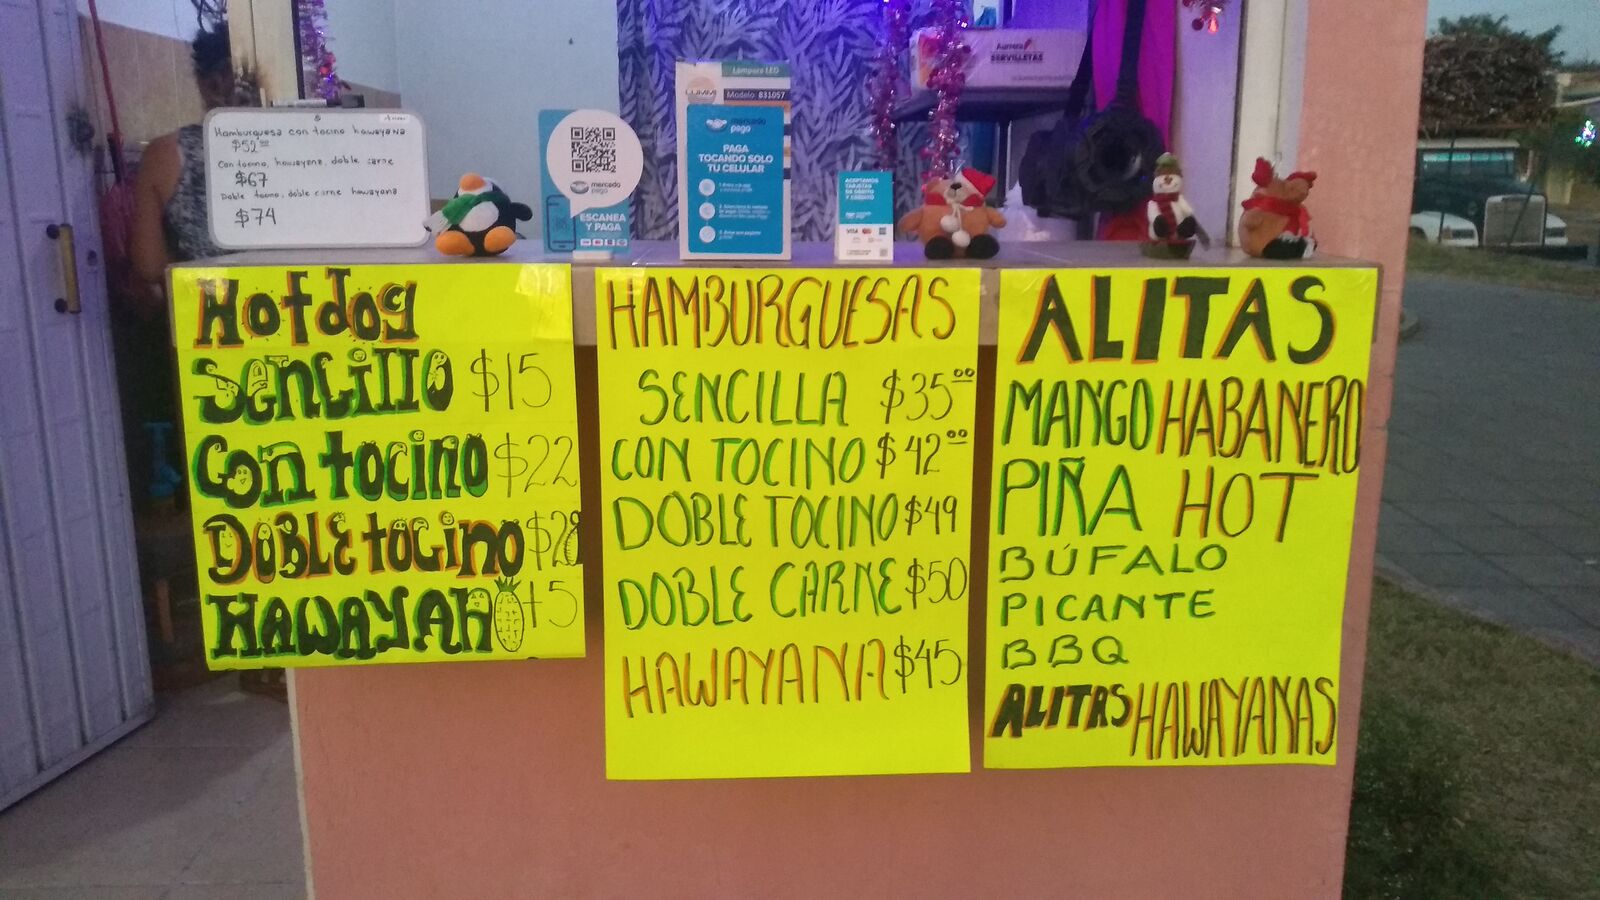 Hamburguesa con tocino hawayana
$52.00
Con tocino, hawayana, doble carne
$67
Doble tocino, doble carne hawayana
$74
mercado pago
ESCANEA
Y PAGA
Lámpara LED
LUMMI
Modelo 831057
mercado pago
PAGA
TOCANDO SOLO
TU CELULAR
ACEPTAMOS
TARJETAS
DE DÉBITO
Y CRÉDITO
VISA
Aurrera
SERVILLETAS
Hotdog
Sencillo $15
Con tocino $22
Doble tocino $28
HAWAYAN +5
HAMBURGUESAS
SENCILLA $35.00
CON TOCINO $42.00
DOBLE TOCINO $49
DOBLE CARNE $50
HAWAYANA $45
ALITAS
MANGO HABANERO
PIÑA HOT
BÚFALO
PICANTE
BBQ
ALITAS HAWAYANAS